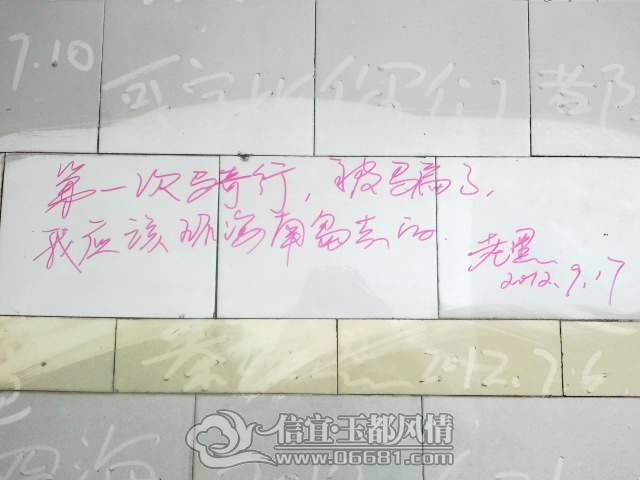 7.10
可 你们 都
第一次骑行，被骗了，
我应该环海南岛去的
老黑
2012.9.17
2012.7.6
信宜·玉都风情
www.06681.com